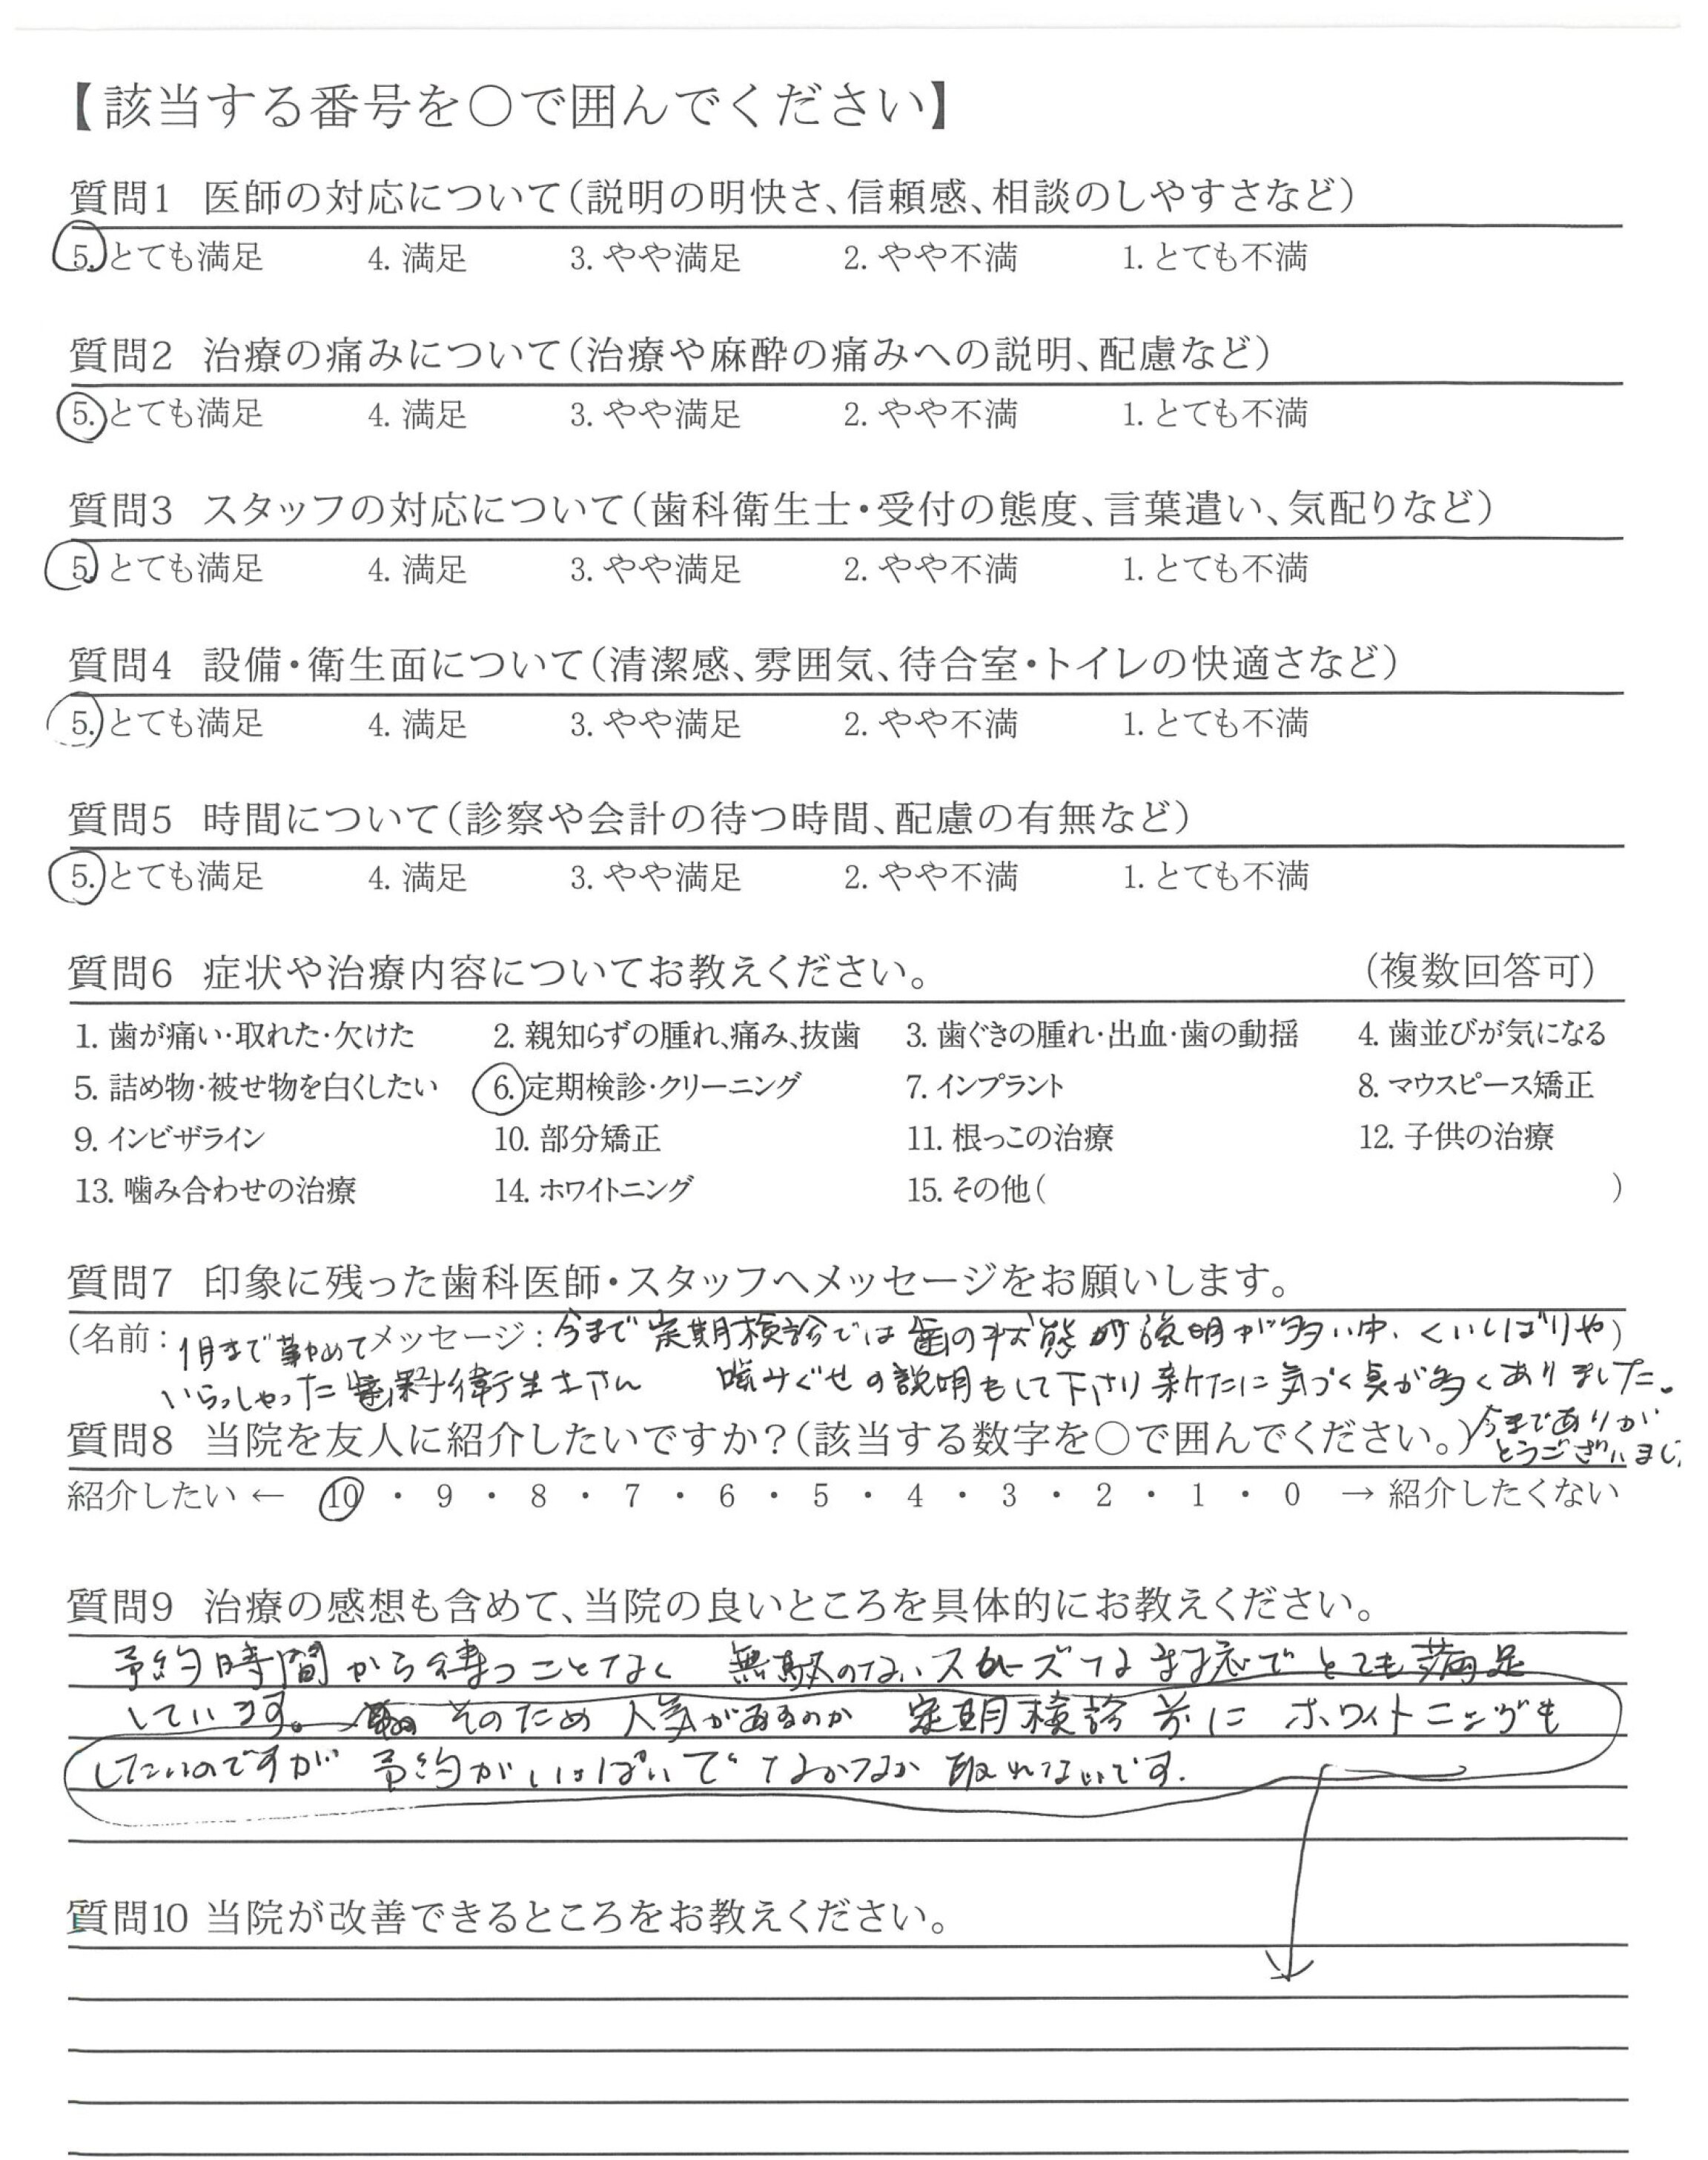 【該当する番号を○で囲んでください】
質問1 医師の対応について(説明の明快さ、信頼感、相談のしやすさなど)
5. とても満足 4. 満足 3. やや満足 2. やや不満 1. とても不満
質問2 治療の痛みについて(治療や麻酔の痛みへの説明、配慮など)
5. とても満足 4. 満足 3. やや満足 2. やや不満 1. とても不満
質問3 スタッフの対応について(歯科衛生士・受付の態度、言葉遣い、気配りなど)
5. とても満足 4. 満足 3. やや満足 2. やや不満 1. とても不満
質問4 設備・衛生面について(清潔感、雰囲気、待合室・トイレの快適さなど)
5. とても満足 4. 満足 3. やや満足 2. やや不満 1. とても不満
質問5 時間について(診察や会計の待つ時間、配慮の有無など)
5. とても満足 4. 満足 3. やや満足 2. やや不満 1. とても不満
質問6 症状や治療内容についてお教えください。 (複数回答可)
1. 歯が痛い・取れた・欠けた 2. 親知らずの腫れ、痛み、抜歯 3. 歯ぐきの腫れ・出血・歯の動揺 4. 歯並びが気になる
5. 詰め物・被せ物を白くしたい 6. 定期検診・クリーニング 7. インプラント 8. マウスピース矯正
9. インビザライン 10. 部分矯正 11. 根っこの治療 12. 子供の治療
13. 噛み合わせの治療 14. ホワイトニング 15. その他( )
質問7 印象に残った歯科医師・スタッフへメッセージをお願いします。
(名前: 1月まで勤めて メッセージ: 今まで定期検診では歯の状態の説明が多い中、くいしばりや)
いらっしゃった歯科衛生士さん 噛みぐせの説明もして下さり新たに気づく点が多くありました。
質問8 当院を友人に紹介したいですか?(該当する数字を○で囲んでください。) 今までありが
とうございまし
紹介したい ← 10 ・ 9 ・ 8 ・ 7 ・ 6 ・ 5 ・ 4 ・ 3 ・ 2 ・ 1 ・ 0 → 紹介したくない
質問9 治療の感想も含めて、当院の良いところを具体的にお教えください。
予約時間から待つことなく 無駄のないスムーズな対応でとても満足
しています。 そのため人気があるのか 定期検診前に ホワイトニングも
したいのですが 予約がいっぱいで なかなか取れないです.
質問10 当院が改善できるところをお教えください。